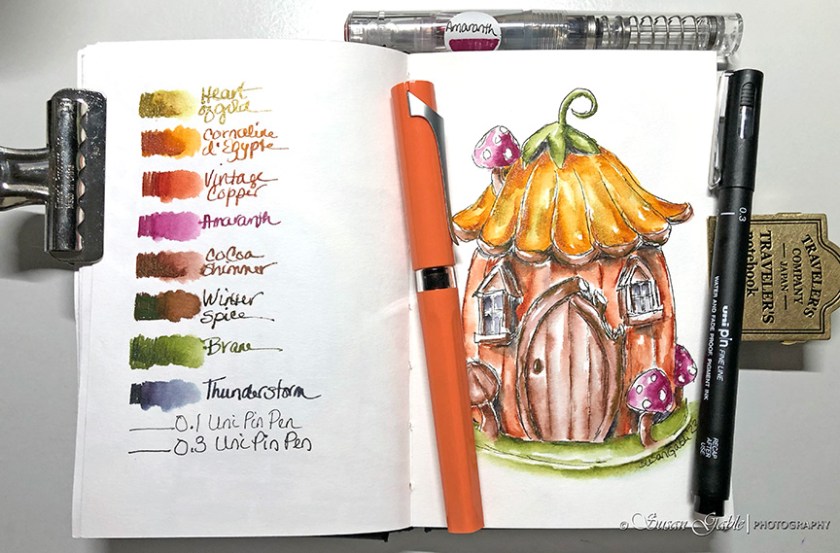 Amaranth
Heart
of gold
Corneline
d'Egypte
Vintage
Copper
Amaranth
Cocoa
Shimmer
Winter
Spice
Brane
Thunderstorm
0.1 Uni Pin Pen
0.3 Uni Pin Pen
0.3
uni pin FINE LINE
WATER AND FADE PROOF, PIGMENT INK
RECAP
AFTER
USE
TRAVELER'S
COMPANY
JAPAN
TRAVELER'S
notebook
© Susan Gable | PHOTOGRAPHY